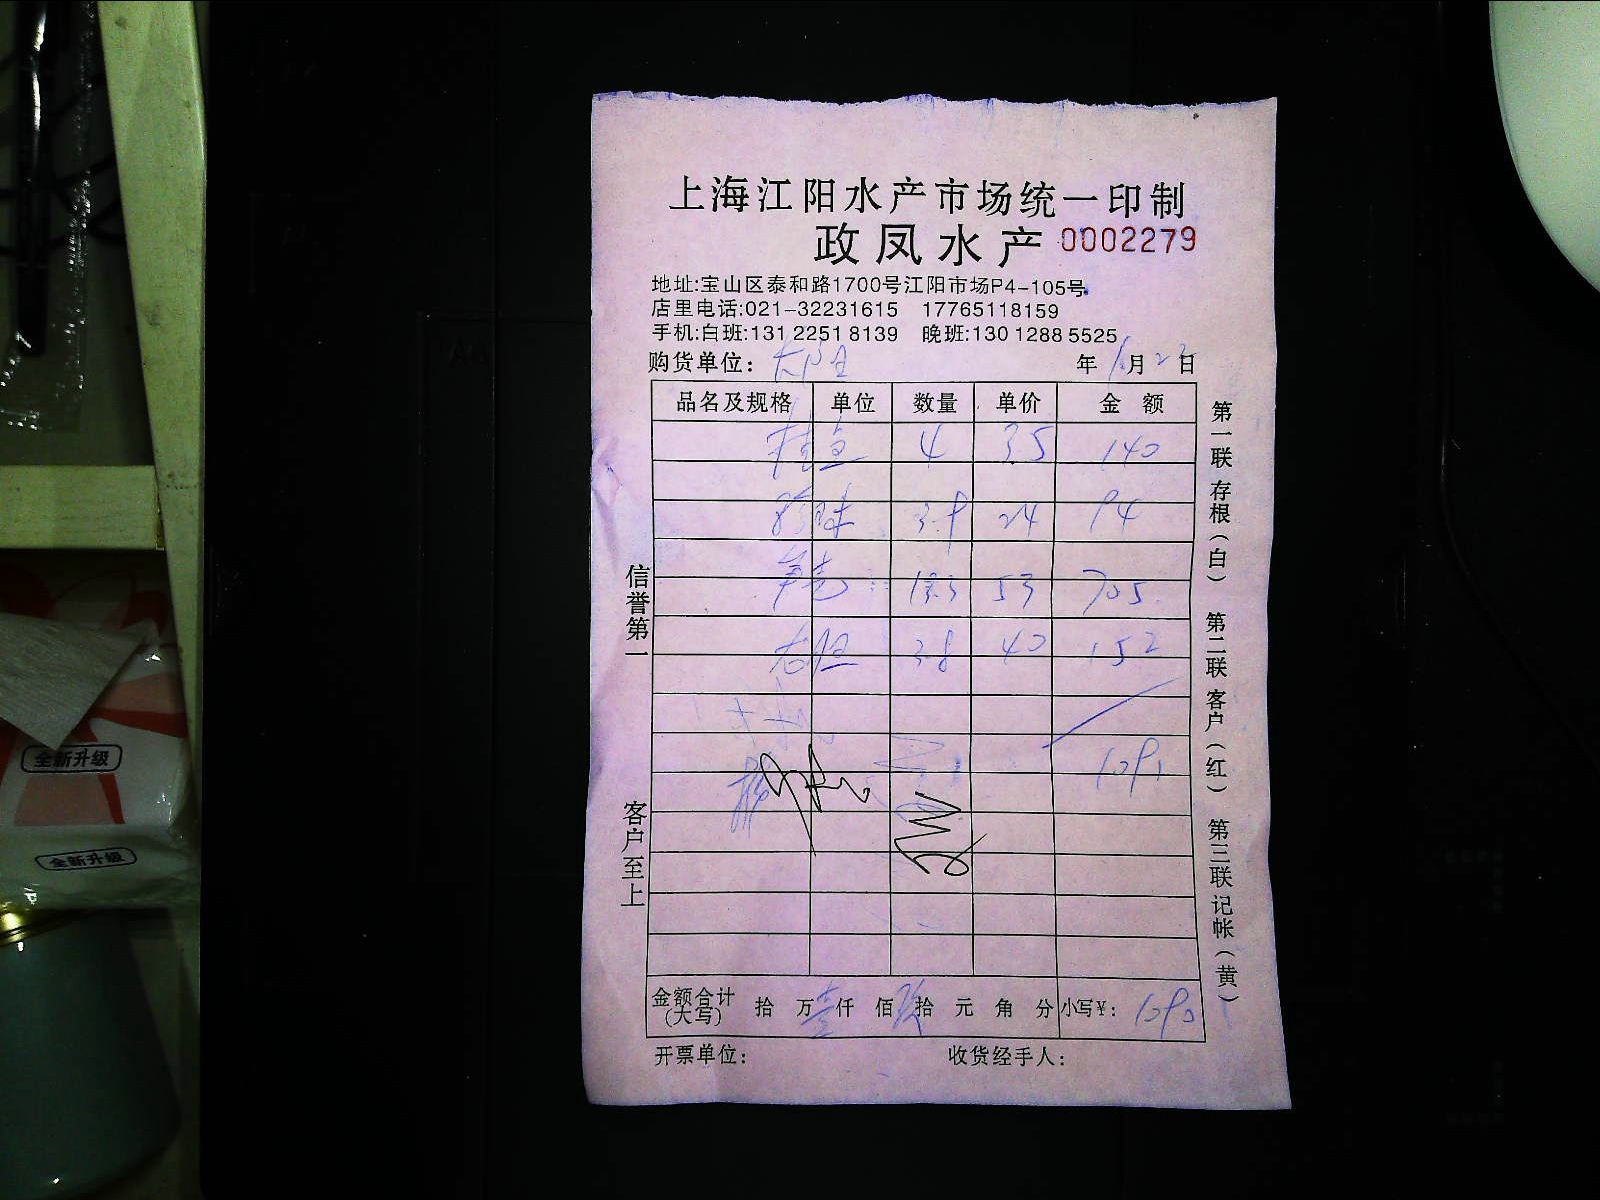 上海江阳水产市场统一印制
政凤水产 0002279
地址:宝山区泰和路1700号江阳市场P4-105号
店里电话:021-32231615 17765118159
手机:白班:131 2251 8139 晚班:130 1288 5525
购货单位: 年 月 日
品名及规格 单位 数量 单价 金 额
桂鱼 4 35 140
3.9 24 94
13.3 53 705
3.8 40 152
1091
金额合计(大写) 拾 万 壹 仟 佰 玖 拾 元 角 分 小写¥: 1090
开票单位: 收货经手人:
信誉第一 客户至上
第一联 存根(白) 第二联 客户(红) 第三联 记帐(黄)
全新升级
全新升级